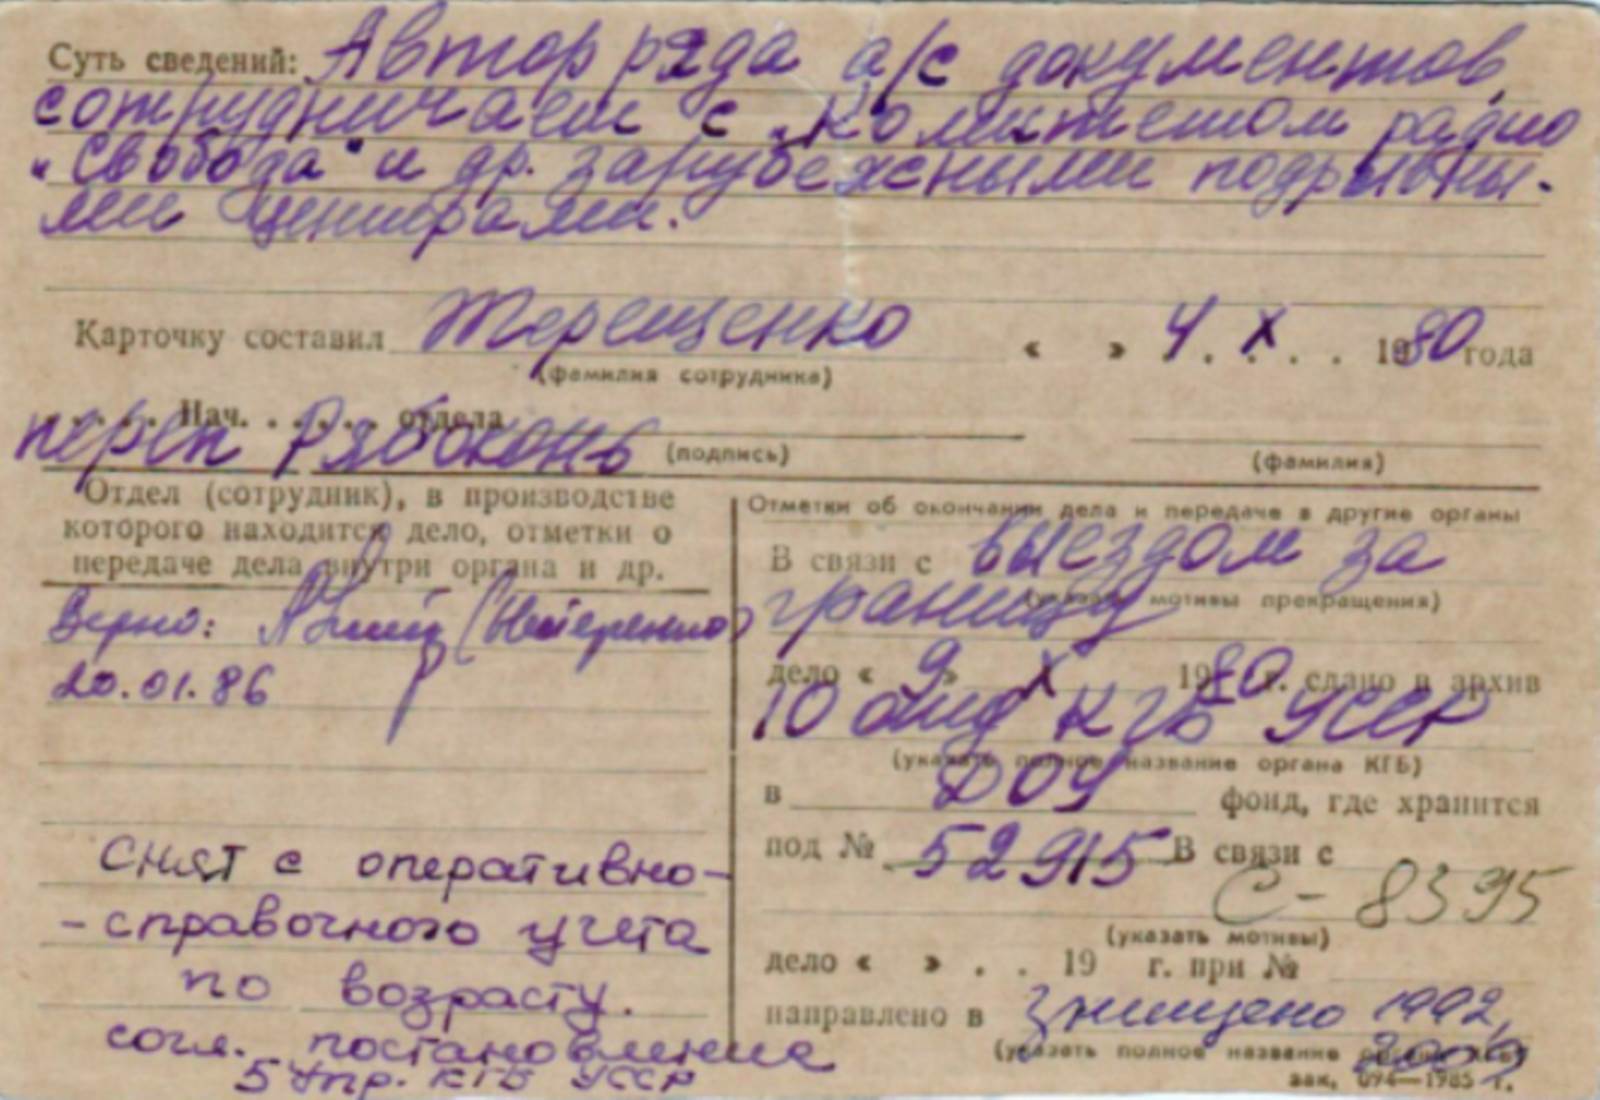 Суть сведений: Автор ряда а/с документов,
сотрудничает с „Комитетом радио
„Свобода" и др. зарубежными подрывны-
ми центрами.
Карточку составил Терещенко « » 4 . X . . 1980 года
(фамилия сотрудника)
. . . . Нач. . . . . . отдела
переп Рябоконь (подпись) (фамилия)
Отдел (сотрудник), в производстве
которого находится дело, отметки о
передаче дела внутри органа и др.
Верно:
20.01.86
снят с оперативно-
-справочного учета
по возрасту.
согл. постановление
5 Упр. КГБ УССР
Отметки об окончании дела и передаче в другие органы
В связи с выездом за
границу
(указать мотивы прекращения)
дело « 9 » X 1980 г. сдано в архив
10 отд КГБ УССР
(указать полное название органа КГБ)
в ДОУ фонд, где хранится
под № 52915 В связи с
С - 8395
(указать мотивы)
дело « » . . 19 г. при №
направлено в Знищено 1992,
(указать полное название органа КГБ)
зак. 094—1985 г.